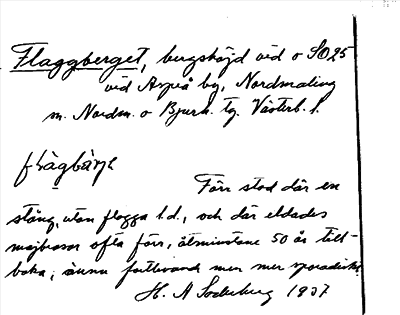 Flaggberget, bergshöjd vid o SO 25
vid Aspeå by, Nordmaling
m. Nordm. o Bjurh. tg. Västerb. l.
flàgbärje
Förr stod där en
stång, utan flagga l.d., och där eldades
majbrasor ofta förr, åtminstone 50 år till-
baka; ännu fortlevande men mer sporadiskt.
H. A Söderberg 1937